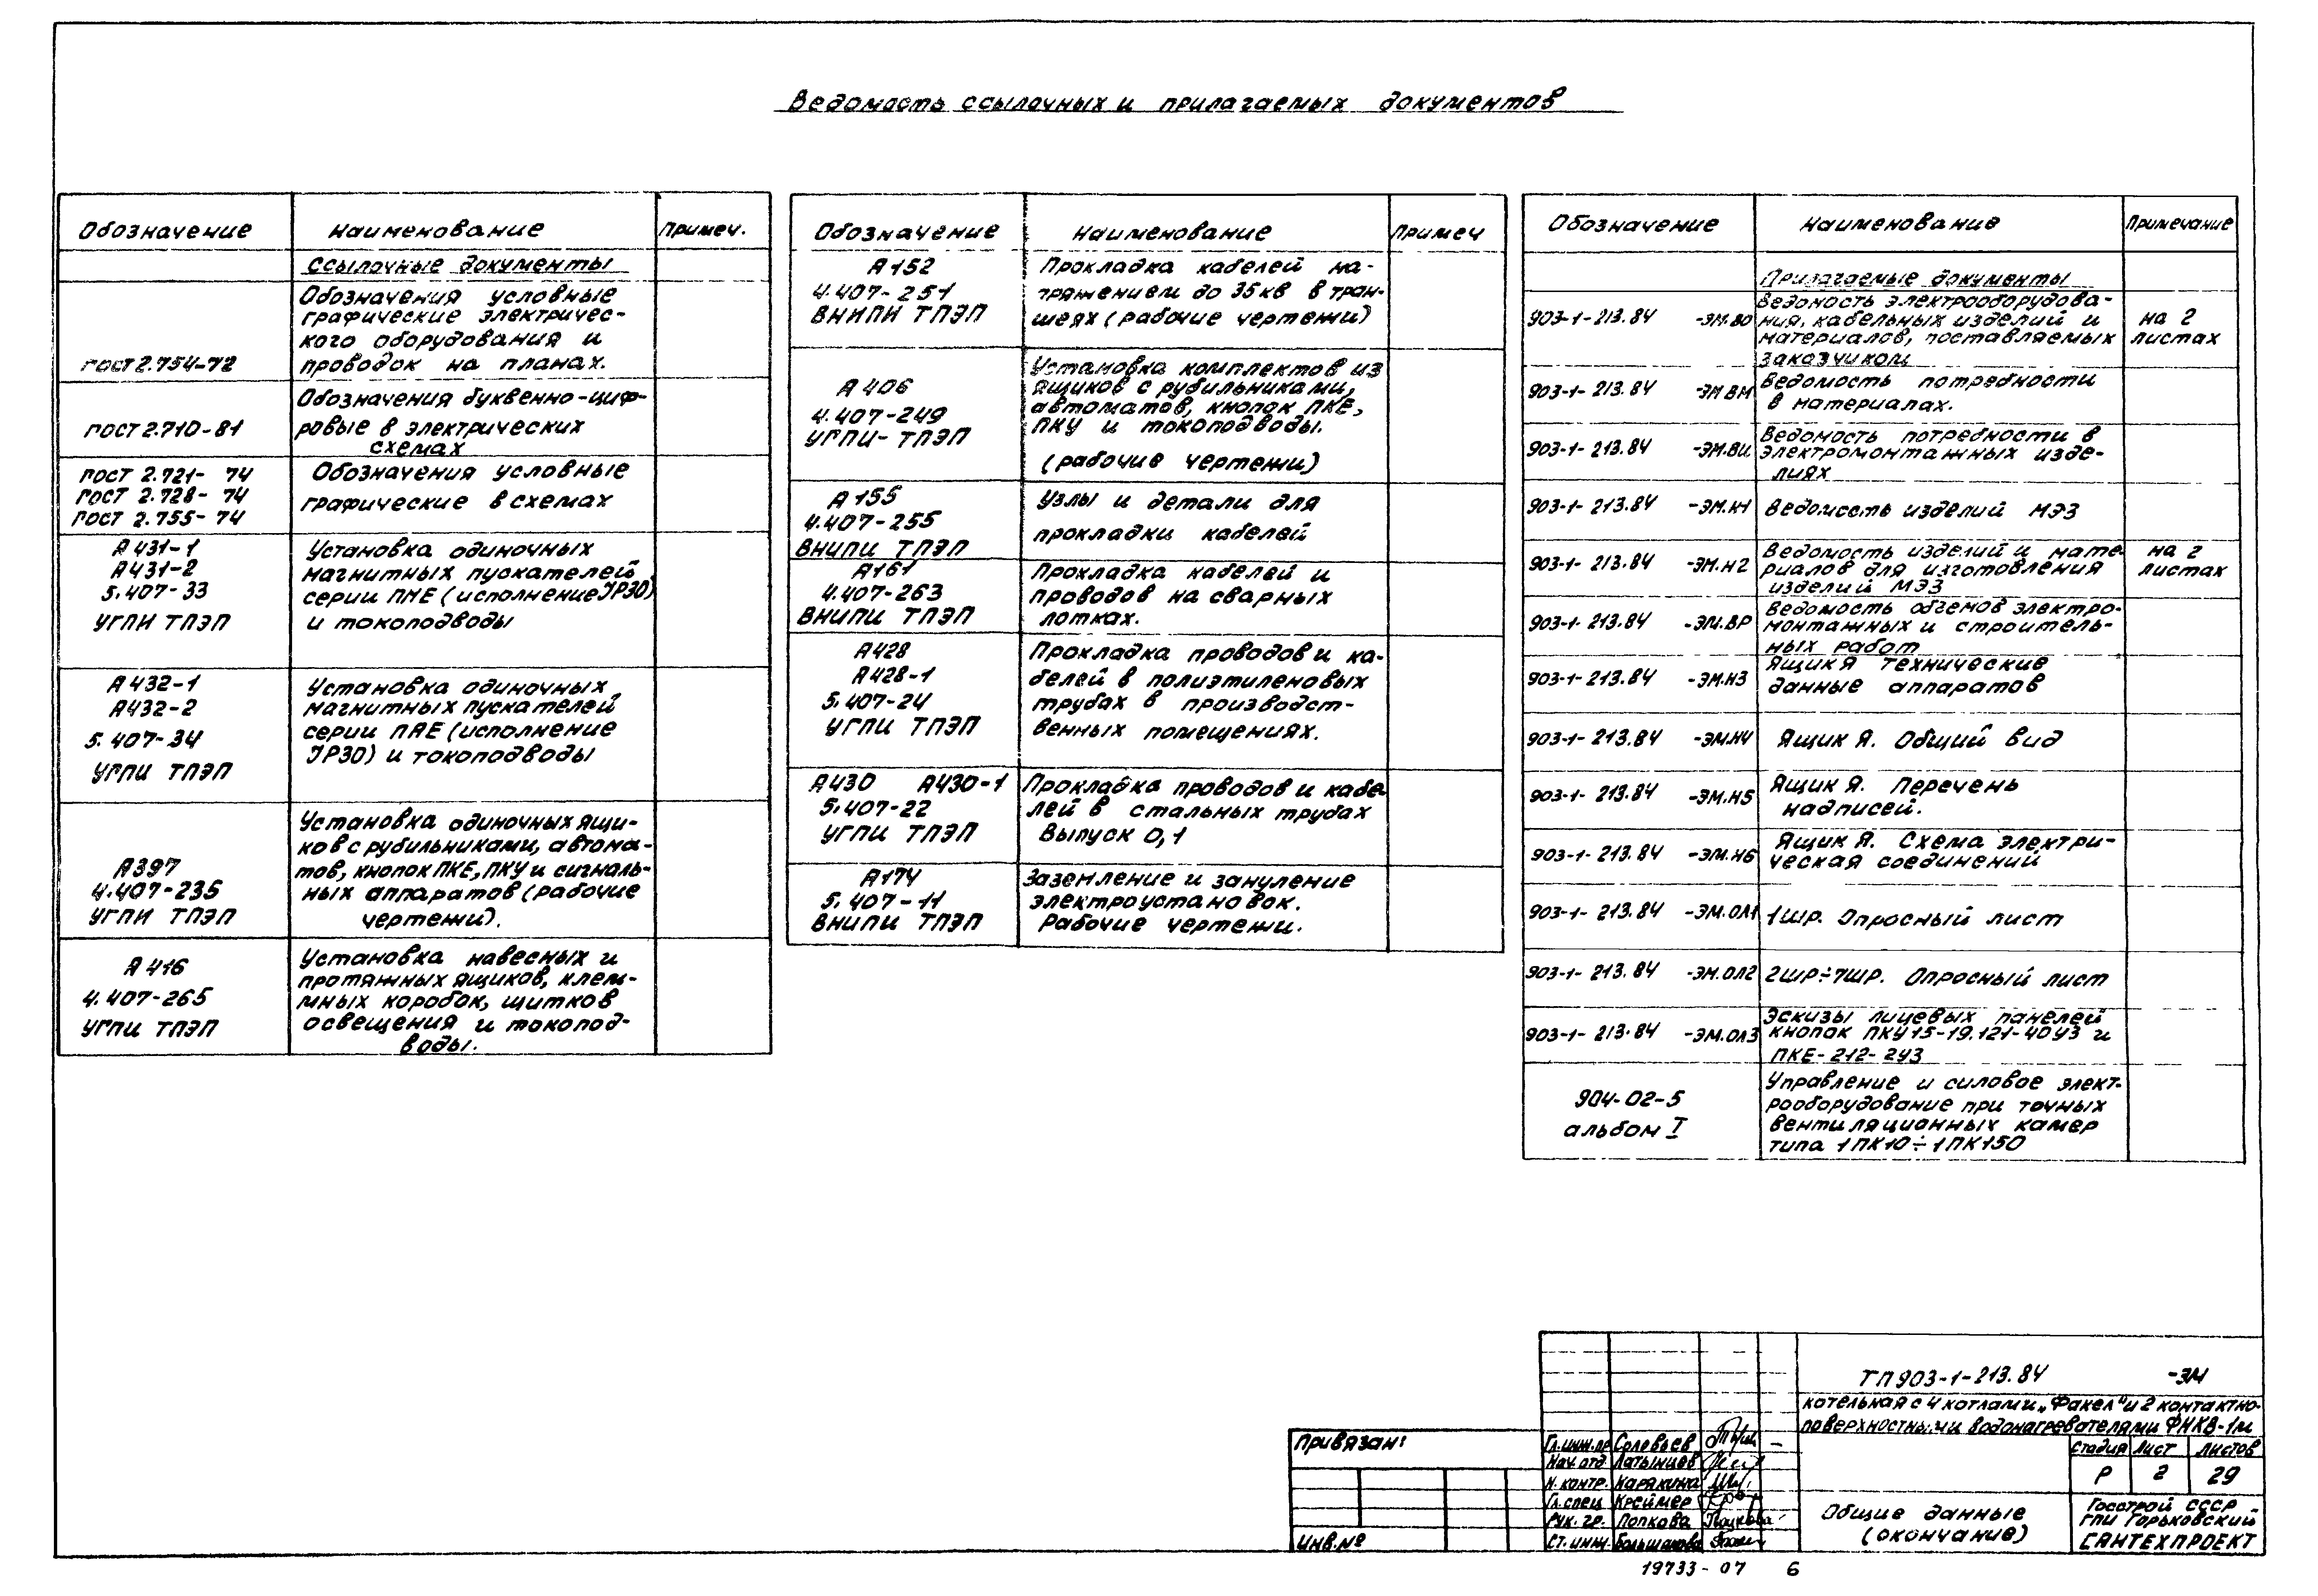 Ведомость ссылочных и прилагаемых документов
Обозначение Наименование Примеч.
Ссылочные документы
Обозначения условные
графические электричес-
кого оборудования и
ГОСТ 2.754-72 проводок на планах.
Обозначения буквенно-циф-
ГОСТ 2.710-81 ровые в электрических
схемах
ГОСТ 2.721- 74 Обозначения условные
ГОСТ 2.728- 74 графические в схемах
ГОСТ 2.755- 74
А431-1 Установка одиночных
А431-2 магнитных пускателей
5.407-33 серии ПМЕ (исполнение IP30)
УГПИ ТПЭП и токоподводы
А432-1 Установка одиночных
А432-2 магнитных пускателей
5.407-34 серии ПАЕ (исполнение
УГПИ ТПЭП IP30) и токоподводы
Установка одиночных ящи-
ков с рубильниками, автома-
А397 тов, кнопок ПКЕ, ПКУ и сигналь-
4.407-235 ных аппаратов (рабочие
УГПИ ТПЭП чертежи).
А416 Установка навесных и
протяжных ящиков, клем-
4.407-265 мных коробок, щитков
УГПИ ТПЭП освещения и токопод-
воды.
Обозначение Наименование Примеч
А152 Прокладка кабелей на-
4.407-251 пряжением до 35кв в тран-
ВНИПИ ТПЭП шеях (рабочие чертежи)
Установка комплектов из
А406 ящиков с рубильниками,
4.407-249 автоматов, кнопок ПКЕ,
УГПИ-ТПЭП ПКУ и токоподводы.
(рабочие чертежи)
А155 Узлы и детали для
4.407-255 прокладки кабелей
ВНИПИ ТПЭП
А161 Прокладка кабелей и
4.407-263 проводов на сварных
ВНИПИ ТПЭП лотках.
А428 Прокладка проводов и ка-
А428-1 белей в полиэтиленовых
5.407-24 трубах в производст-
УГПИ ТПЭП венных помещениях.
А430 А430-1 Прокладка проводов и кабе-
5.407-22 лей в стальных трубах
УГПИ ТПЭП Выпуск 0,1
А174 Заземление и зануление
5.407-11 электроустановок.
ВНИПИ ТПЭП Рабочие чертежи.
Обозначение Наименование Примечание
Прилагаемые документы
Ведомость электрооборудова-
903-1-213.84 -ЭМ.ВО ния, кабельных изделий и на 2
материалов, поставляемых листах
заказчиком
903-1-213.84 -ЭМ.ВМ Ведомость потребности
в материалах.
903-1-213.84 -ЭМ.ВИ Ведомость потребности в
электромонтажных изде-
лиях
903-1-213.84 -ЭМ.Н1 Ведомость изделий МЭЗ
903-1-213.84 -ЭМ.Н2 Ведомость изделий и мате- на 2
риалов для изготовления листах
изделий МЭЗ
903-1-213.84 -ЭМ.ВР Ведомость объемов электро-
монтажных и строитель-
ных работ
903-1-213.84 -ЭМ.Н3 Ящик Я технические
данные аппаратов
903-1-213.84 -ЭМ.Н4 Ящик Я. Общий вид
903-1-213.84 -ЭМ.Н5 Ящик Я. Перечень
надписей.
903-1-213.84 -ЭМ.Н6 Ящик Я. Схема электри-
ческая соединений
903-1-213.84 -ЭМ.ОЛ1 1ШР. Опросный лист
903-1-213.84 -ЭМ.ОЛ2 2ШР÷7ШР. Опросный лист
903-1-213.84 -ЭМ.ОЛ3 Эскизы лицевых панелей
кнопок ПКУ15-19.121-40У3 и
ПКЕ-212-2У3
904-02-5 Управление и силовое элект-
альбом I рооборудование при точных
вентиляционных камер
типа 1ПК10÷1ПК150
ТП903-1-213.84 -ЭМ
Котельная с 4 котлами „Факел" и 2 контактно-
поверхностными водонагревателями ФНКВ-1м
Привязан:
Гл.инж.пр Соловьев
Нач.отд Латынцев
Н.контр. Карякина
Гл.спец Креймер
Рук.гр. Попкова
Ст.инж Большакова
Инв.№
Стадия Лист Листов
Р 2 29
Общие данные
(окончание)
Госстрой СССР
ГПИ Горьковский
САНТЕХПРОЕКТ
19733-07 6